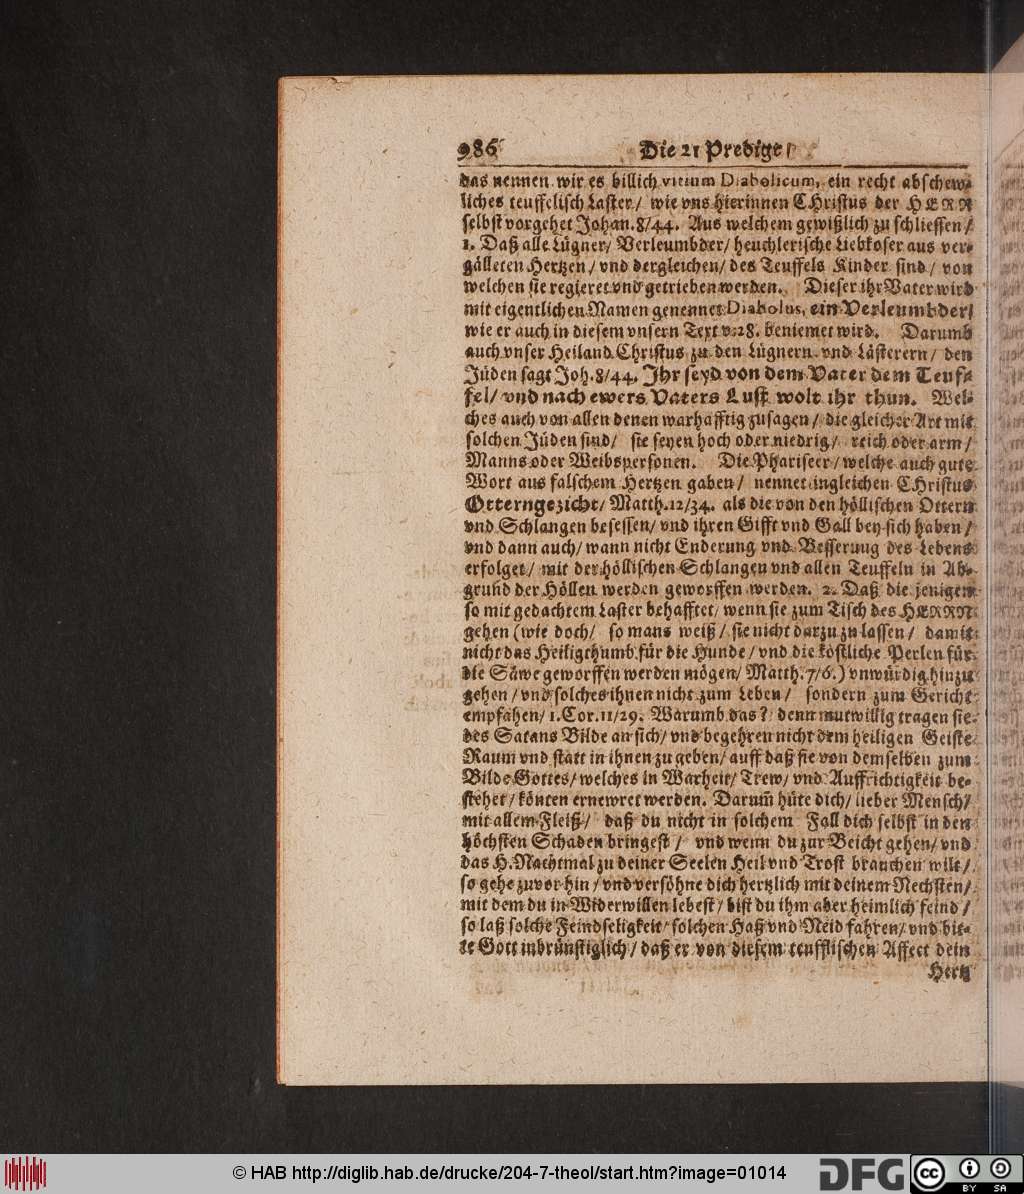 986 Die 21 Predigt/
das nennen wir es billich vitium Diabolicum, ein recht abschew-
liches teuffelisch Laster/ wie vns hierinnen CHristus der HERR
selbst vorgehet Johan. 8/44. Aus welchem gewißlich zu schliessen/
1. Daß alle Lügner/ Verleumbder/ heuchlerische Liebkoser aus ver-
gälleten Hertzen/ vnd dergleichen/ des Teuffels Kinder sind/ von
welchen sie regieret vnd getrieben werden. Dieser ihr Vater wird
mit eigentlichen Namen genennet Diabolus, ein Verleumbder/
wie er auch in diesem vnsern Text v. 28. beniemet wird. Darumb
auch vnser Heiland Christus zu den Lügnern vnd Lästerern/ den
Jüden sagt Joh. 8/44. Ihr seyd von dem Vater dem Teuf-
fel/ vnd nach ewers Vaters Lust wolt ihr thun. Wel-
ches auch von allen denen warhafftig zusagen/ die gleicher Art mit
solchen Jüden sind/ sie seyen hoch oder niedrig/ reich oder arm/
Manns oder Weibspersonen. Die Phariseer/ welche auch gute
Wort aus falschem Hertzen gaben/ nennet ingleichen CHristus
Otterngezicht/ Matth. 12/34. als die von den höllischen Ottern
vnd Schlangen besessen/ vnd ihren Gifft vnd Gall bey sich haben/
vnd dann auch/ wann nicht Enderung vnd Besserung des Lebens
erfolget/ mit der höllischen Schlangen vnd allen Teuffeln in Ab-
grund der Höllen werden geworffen werden. 2. Daß die jenigen
so mit gedachtem Laster behafftet/ wenn sie zum Tisch des HERRN
gehen (wie doch/ so mans weiß/ sie nicht darzu zu lassen/ damit
nicht das Heiligthumb für die Hunde/ vnd die köstliche Perlen für
die Säwe geworffen werden mögen/ Matth. 7/6.) vnwürdig hinzu
gehen/ vnd solches ihnen nicht zum Leben/ sondern zum Gericht
empfahen/ 1. Cor. 11/29. Warumb das? denn mutwillig tragen sie
des Satans Bilde an sich/ vnd begehren nicht dem heiligen Geiste
Raum vnd statt in ihnen zu geben/ auff daß sie von demselben zum
Bilde Gottes/ welches in Warheit/ Trew/ vnd Auffrichtigkeit be-
stehet/ könten ernewret werden. Darum̃ hüte dich/ lieber Mensch/
mit allem Fleiß/ daß du nicht in solchem Fall dich selbst in den
höchsten Schaden bringest/ vnd wenn du zur Beicht gehen/ vnd
das H. Nachtmal zu deiner Seelen Heil vnd Trost brauchen wilt/
so gehe zuvor hin/ vnd versöhne dich hertzlich mit deinem Nechsten/
mit dem du in Widerwillen lebest/ bist du ihm aber heimlich feind/
so laß solche Feindseligkeit/ solchen Haß vnd Neid fahren/ vnd bit-
te Gott inbrünstiglich/ daß er von diesem teufflischen Affect dein
Hertz
© HAB http://diglib.hab.de/drucke/204-7-theol/start.htm?image=01014
DFG
cc BY SA